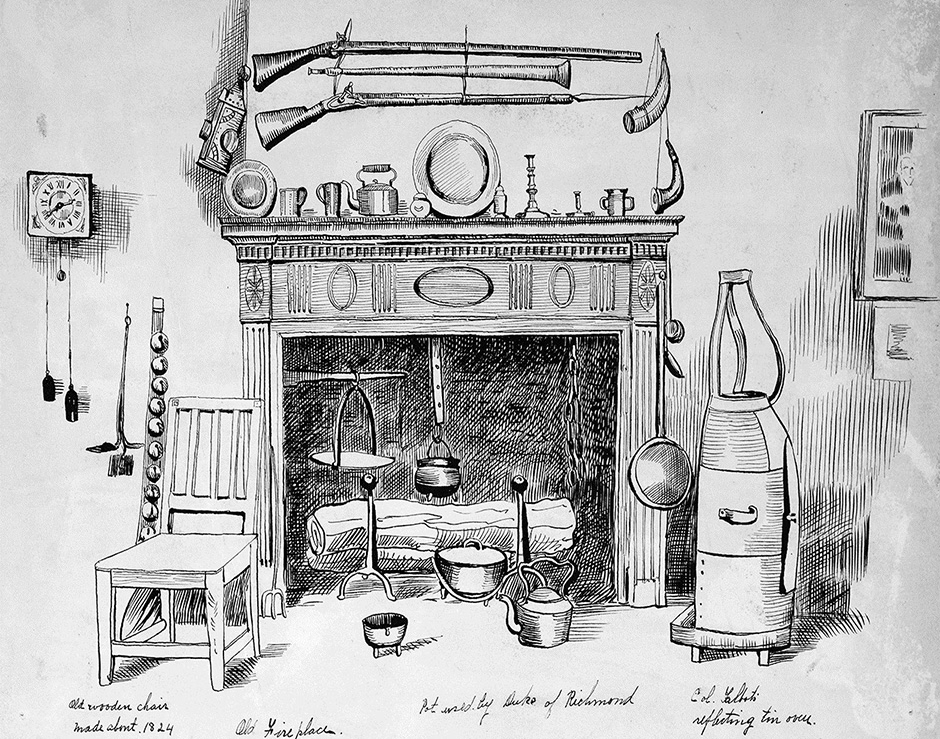 Old wooden chair
made about. 1824
Old Fireplace.
Pot used by Duke of Richmond
Col. Talbots
reflecting tin oven.